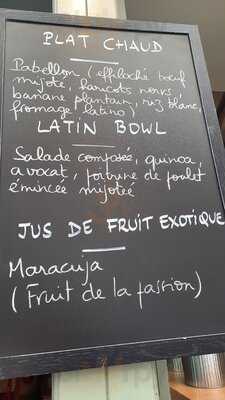 PLAT CHAUD
Pabellon (effiloché bœuf
mijoté, haricots noirs,
banane plantain, riz blanc,
fromage latino)
LATIN BOWL
Salade composée, quinoa,
avocat, poitrine de poulet
émincée mijotée
JUS DE FRUIT EXOTIQUE
Maracuja
(Fruit de la passion)